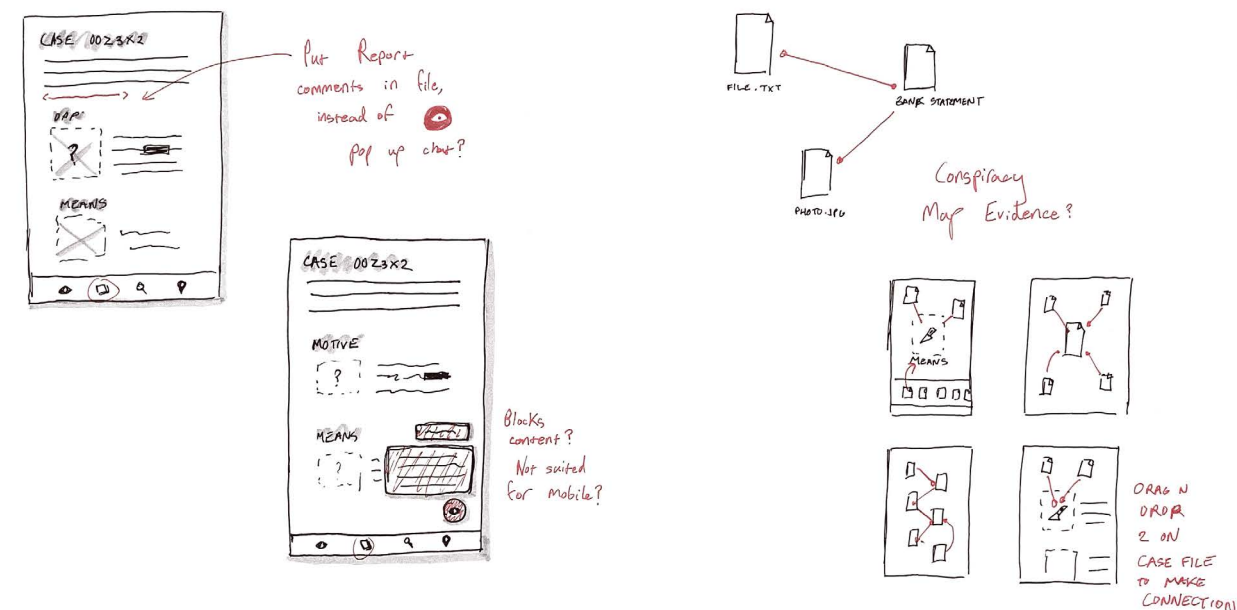 CASE 0023X2
Put Report
comments in file,
instead of
pop up chat?
?
MEANS
CASE 0023X2
MOTIVE
?
MEANS
?
Blocks
content?
Not suited
for mobile?
FILE.TXT
BANK STATEMENT
PHOTO.JPG
Conspiracy
Map Evidence?
MEANS
DRAG N
DROP
2 ON
CASE FILE
TO MAKE
CONNECTION